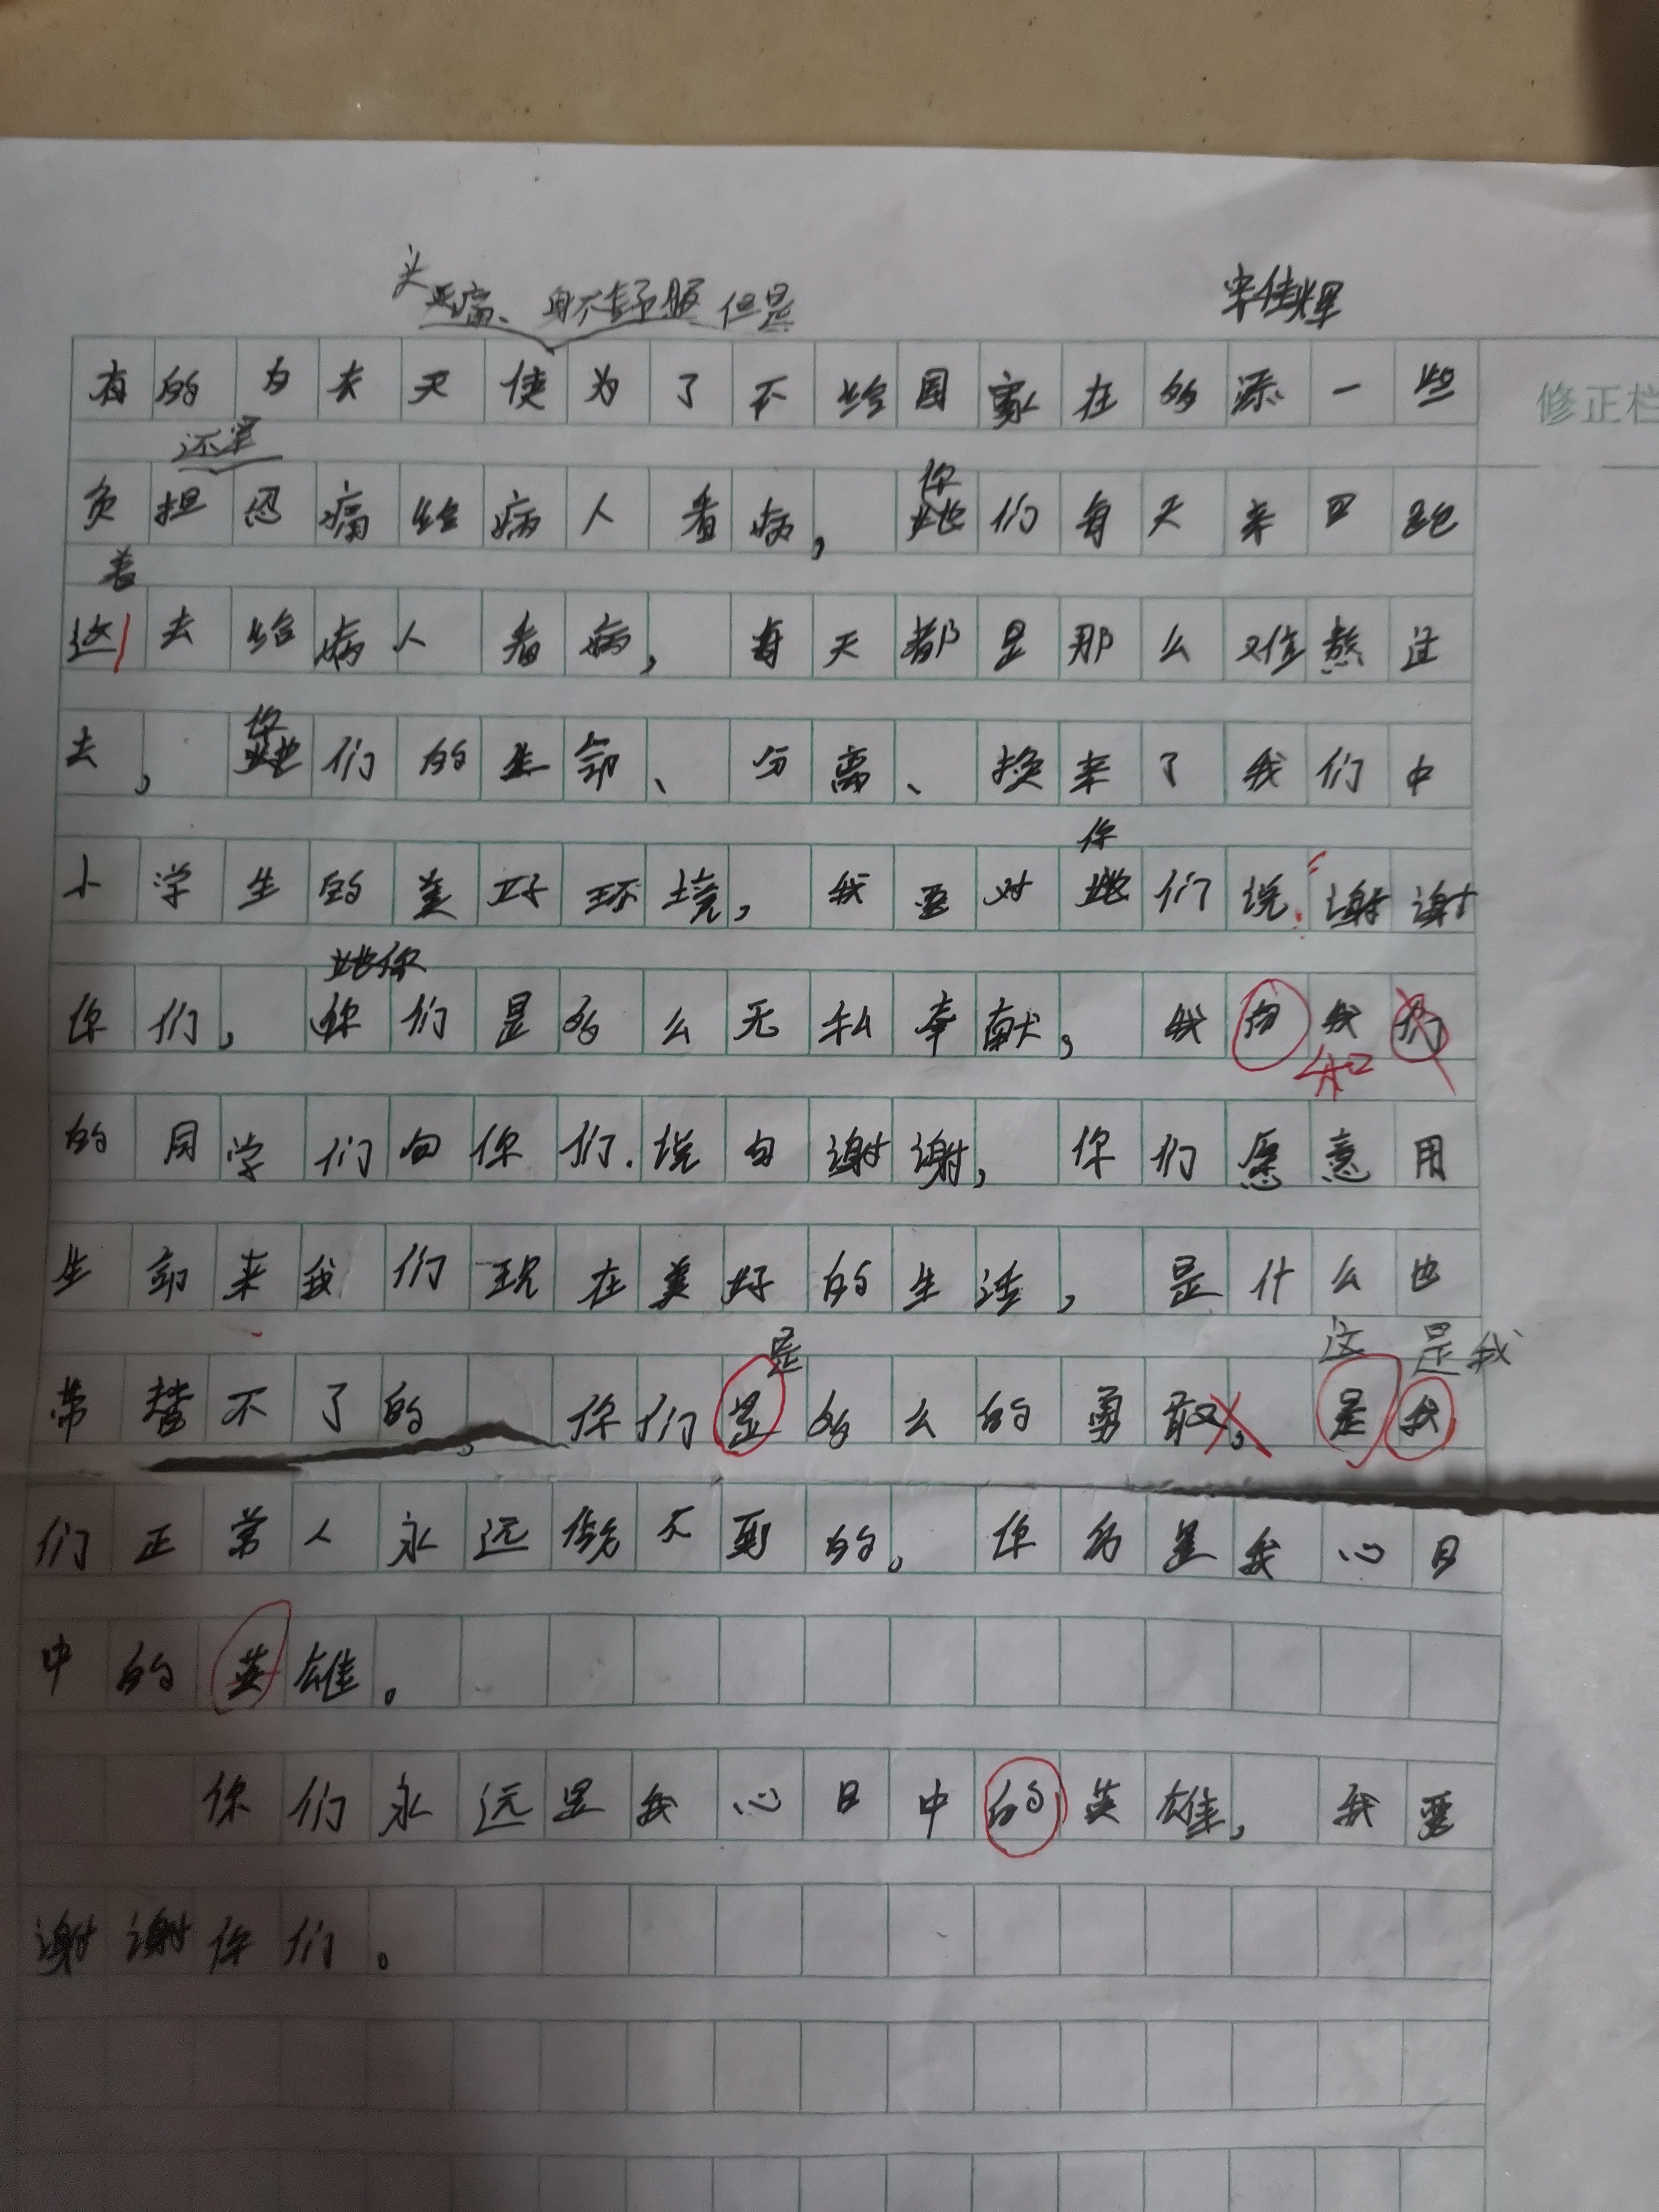 头很痛、身不舒服 但是
宋佳辉
有的白衣天使为了不给国家在的添一些
修正栏
还坚
负担忍痛给病人看病,你她们每天来回跑
着
这去给病人看病,每天都是那么难熬过
你
去,她们的生命、分离、换来了我们中
你
小学生的美好环境,我要对她们说:“谢谢
她你
你们,你们是多么无私奉献,我向我们
和
的同学们向你们.说句谢谢,你们愿意用
生命来我们现在美好的生活,是什么也
是 这 是我
带替不了的,你们是多么的勇敢,是我
们正常人永远做不到的。你们是我心目
中的英雄。
你们永远是我心目中的英雄,我要
谢谢你们。